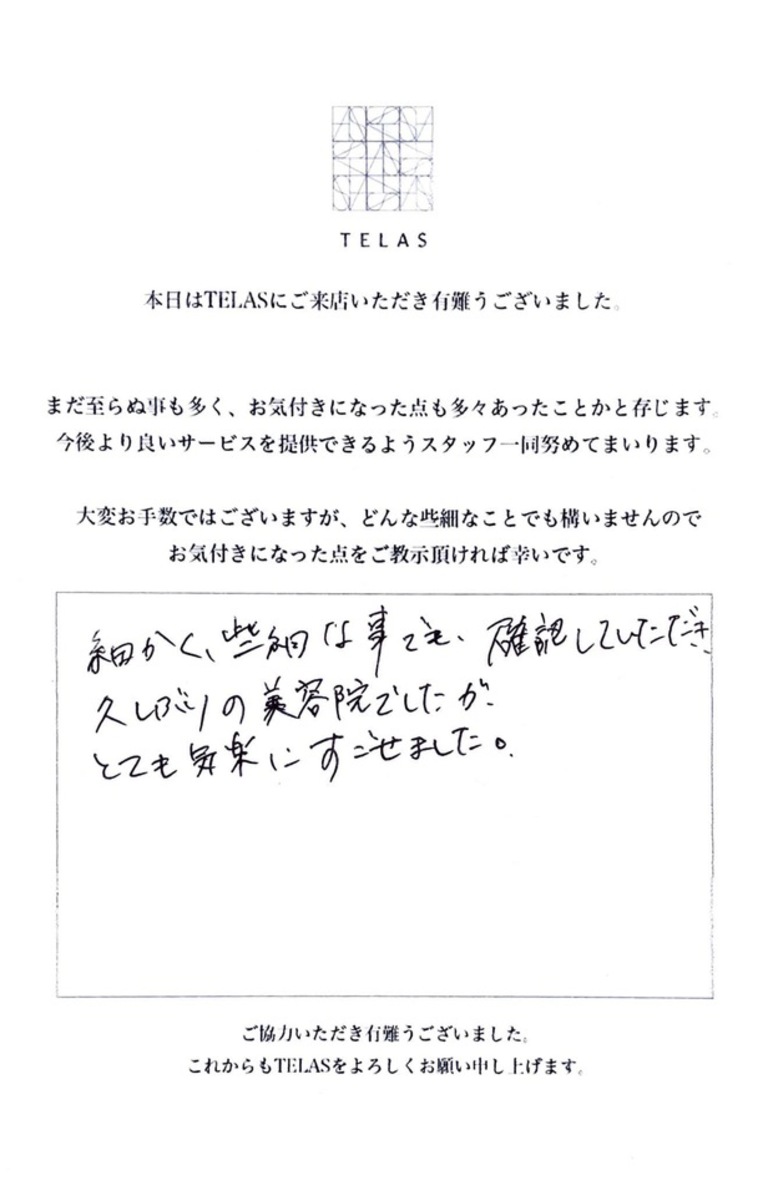 TELAS
本日はTELASにご来店いただき有難うございました。
まだ至らぬ事も多く、お気付きになった点も多々あったことかと存じます。
今後より良いサービスを提供できるようスタッフ一同努めてまいります。
大変お手数ではございますが、どんな些細なことでも構いませんので
お気付きになった点をご教示頂ければ幸いです。
細かく、些細な事でも、確認していただき、
久しぶりの美容院でしたが、
とても気楽にすごせました。
ご協力いただき有難うございました。
これからもTELASをよろしくお願い申し上げます。